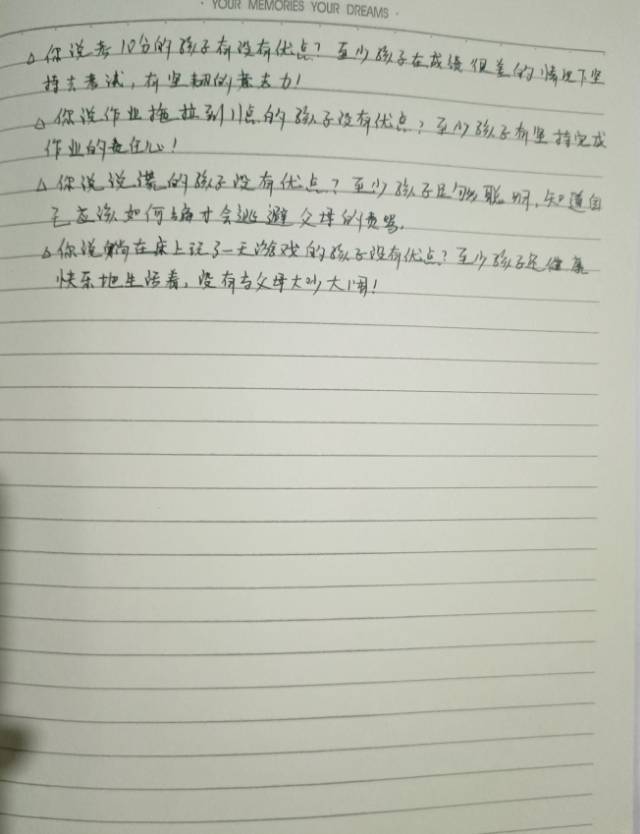 · YOUR MEMORIES YOUR DREAMS ·
△ 你说考10分的孩子有没有优点？至少孩子在成绩很差的情况下坚
持去考试，有坚韧的意志力！
△ 你说作业拖拉到11点的孩子没有优点？至少孩子有坚持完成
作业的责任心！
△ 你说说谎的孩子没有优点？至少孩子足够聪明，知道自
己应该如何编才会逃避父母的责骂。
△ 你说躺在床上玩了一天游戏的孩子没有优点？至少孩子是健康
快乐地生活着，没有与父母大吵大闹！